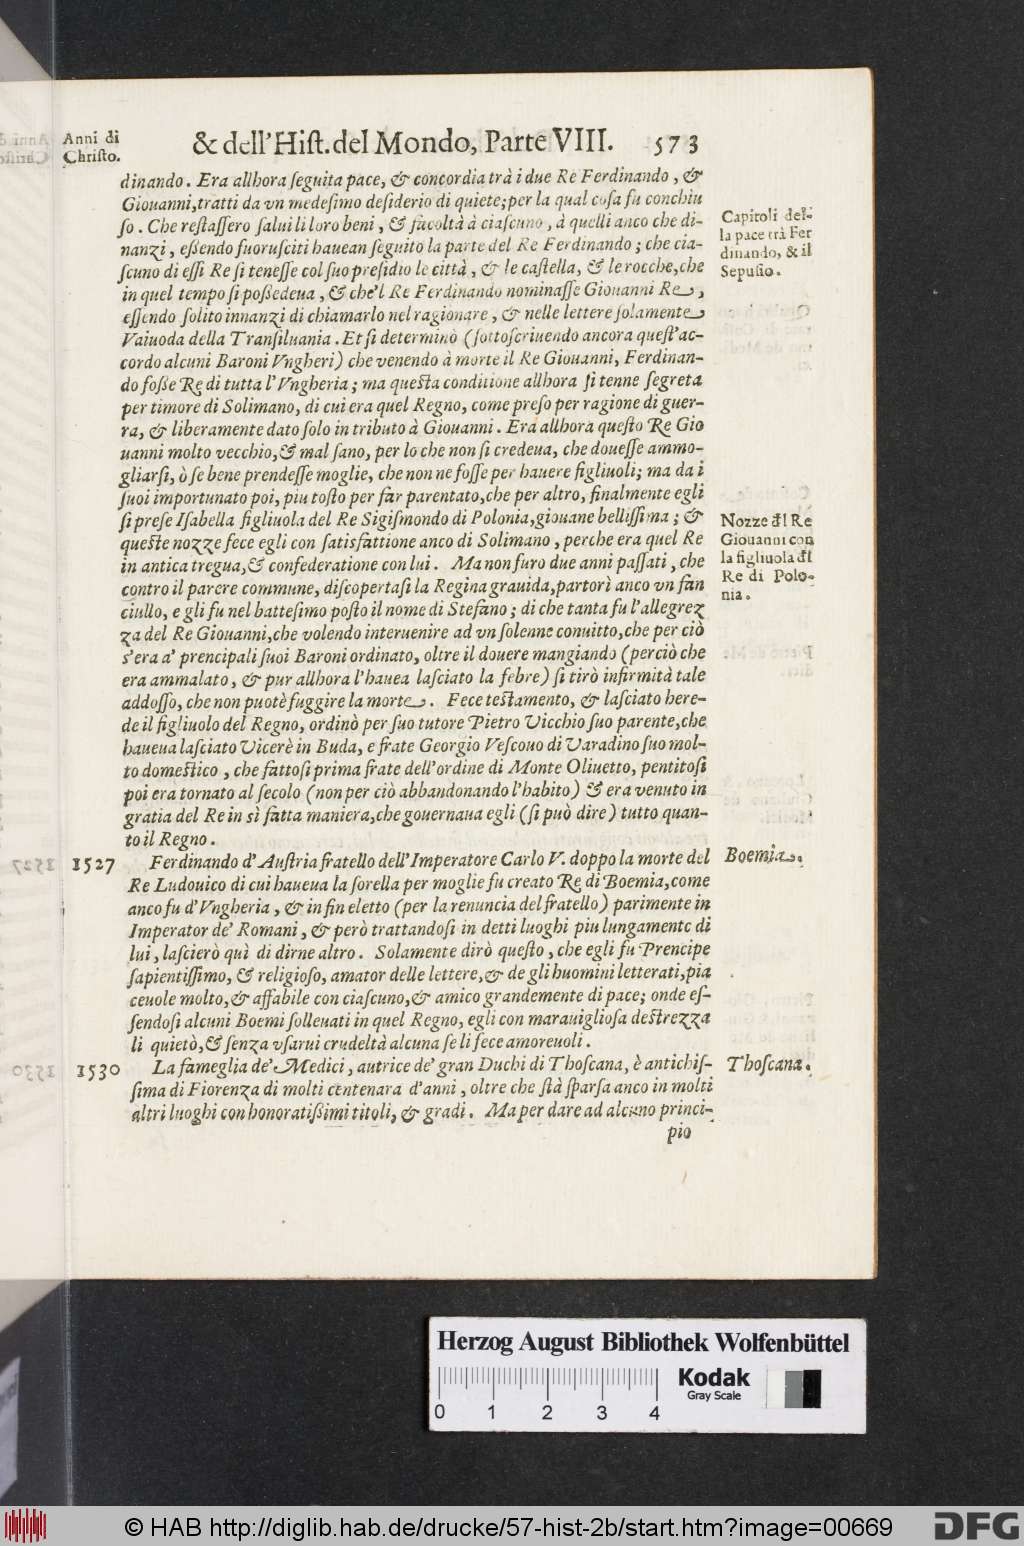 Anni di
Christo.
& dell'Hist. del Mondo, Parte VIII. 573
dinando. Era allhora seguita pace, & concordia trà i due Re Ferdinando, &
Giouanni, tratti da vn medesimo desiderio di quiete; per la qual cosa fu conchiu
so. Che restassero salui li loro beni, & facoltà à ciascuno, à quelli anco che di-
nanzi, essendo fuorusciti hauean seguito la parte del Re Ferdinando; che cia-
scuno di essi Re si tenesse col suo presidio le città, & le castella, & le rocche, che
in quel tempo si possedeua, & che'l Re Ferdinando nominasse Giouanni Re,
essendo solito innanzi di chiamarlo nel ragionare, & nelle lettere solamente
Vaiuoda della Transiluania. Et si determinò (sottoscriuendo ancora quest'ac-
cordo alcuni Baroni Vngheri) che venendo à morte il Re Giouanni, Ferdinan-
do fosse Re di tutta l'Vngheria; ma questa conditione allhora si tenne segreta
per timore di Solimano, di cui era quel Regno, come preso per ragione di guer-
ra, & liberamente dato solo in tributo à Giouanni. Era allhora questo Re Gio
uanni molto vecchio, & mal sano, per lo che non si credeua, che douesse ammo-
gliarsi, ò se bene prendesse moglie, che non ne fosse per hauere figliuoli; ma da i
suoi importunato poi, piu tosto per far parentato, che per altro, finalmente egli
si prese Isabella figliuola del Re Sigismondo di Polonia, giouane bellissima; &
queste nozze fece egli con satisfattione anco di Solimano, perche era quel Re
in antica tregua, & confederatione con lui. Ma non furo due anni passati, che
contro il parere commune, discopertasi la Regina grauida, partorì anco vn fan
ciullo, e gli fu nel battesimo posto il nome di Stefano; di che tanta fu l'allegrez
za del Re Giouanni, che volendo interuenire ad vn solenne conuitto, che per ciò
s'era a' prencipali suoi Baroni ordinato, oltre il douere mangiando (perciò che
era ammalato, & pur allhora l'hauea lasciato la febre) si tirò infirmità tale
addosso, che non puotè fuggire la morte. Fece testamento, & lasciato here-
de il figliuolo del Regno, ordinò per suo tutore Pietro Vicchio suo parente, che
haueua lasciato Vicerè in Buda, e frate Georgio Vescouo di Varadino suo mol-
to domestico, che fattosi prima frate dell'ordine di Monte Oliuetto, pentitosi
poi era tornato al secolo (non per ciò abbandonando l'habito) & era venuto in
gratia del Re in sì fatta maniera, che gouernaua egli (si può dire) tutto quan-
to il Regno.
Capitoli del-
la pace trà Fer
dinando, & il
Sepusio.
Nozze d̄l Re
Giouanni con
la figliuola d̄l
Re di Polo-
nia.
1527 Ferdinando d'Austria fratello dell'Imperatore Carlo V. doppo la morte del
Re Ludouico di cui haueua la sorella per moglie fu creato Re di Boemia, come
anco fu d'Vngheria, & in fin eletto (per la renuncia del fratello) parimente in
Imperator de' Romani, & però trattandosi in detti luoghi piu lungamente di
lui, lascierò quì di dirne altro. Solamente dirò questo, che egli fu Prencipe
sapientissimo, & religioso, amator delle lettere, & de gli huomini letterati, pia
ceuole molto, & affabile con ciascuno, & amico grandemente di pace; onde es-
sendosi alcuni Boemi solleuati in quel Regno, egli con marauigliosa destrezza
li quietò, & senza vsarui crudeltà alcuna se li fece amoreuoli.
Boemia.
1530 La fameglia de' Medici, autrice de' gran Duchi di Thoscana, è antichis-
sima di Fiorenza di molti centenara d'anni, oltre che stà sparsa anco in molti
altri luoghi con honoratissimi titoli, & gradi. Ma per dare ad alcuno princi-
pio
Thoscana.
Herzog August Bibliothek Wolfenbüttel
Kodak
Gray Scale
0 1 2 3 4
© HAB http://diglib.hab.de/drucke/57-hist-2b/start.htm?image=00669
DFG